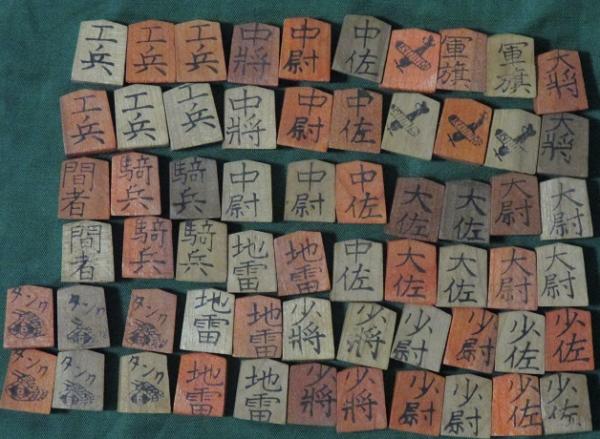 工兵 工兵 工兵 中將 中尉 中佐 軍旗 軍旗 大將
工兵 工兵 工兵 中將 中尉 中佐 大將
間者 騎兵 騎兵 中尉 中尉 中佐 大佐 大佐 大尉 大尉
間者 騎兵 騎兵 地雷 地雷 中佐 大佐 大佐 大尉 大尉
タンク タンク タンク 地雷 地雷 少將 少將 少尉 少尉 少佐 少佐
タンク タンク タンク 地雷 地雷 少將 少將 少尉 少尉 少佐 少佐